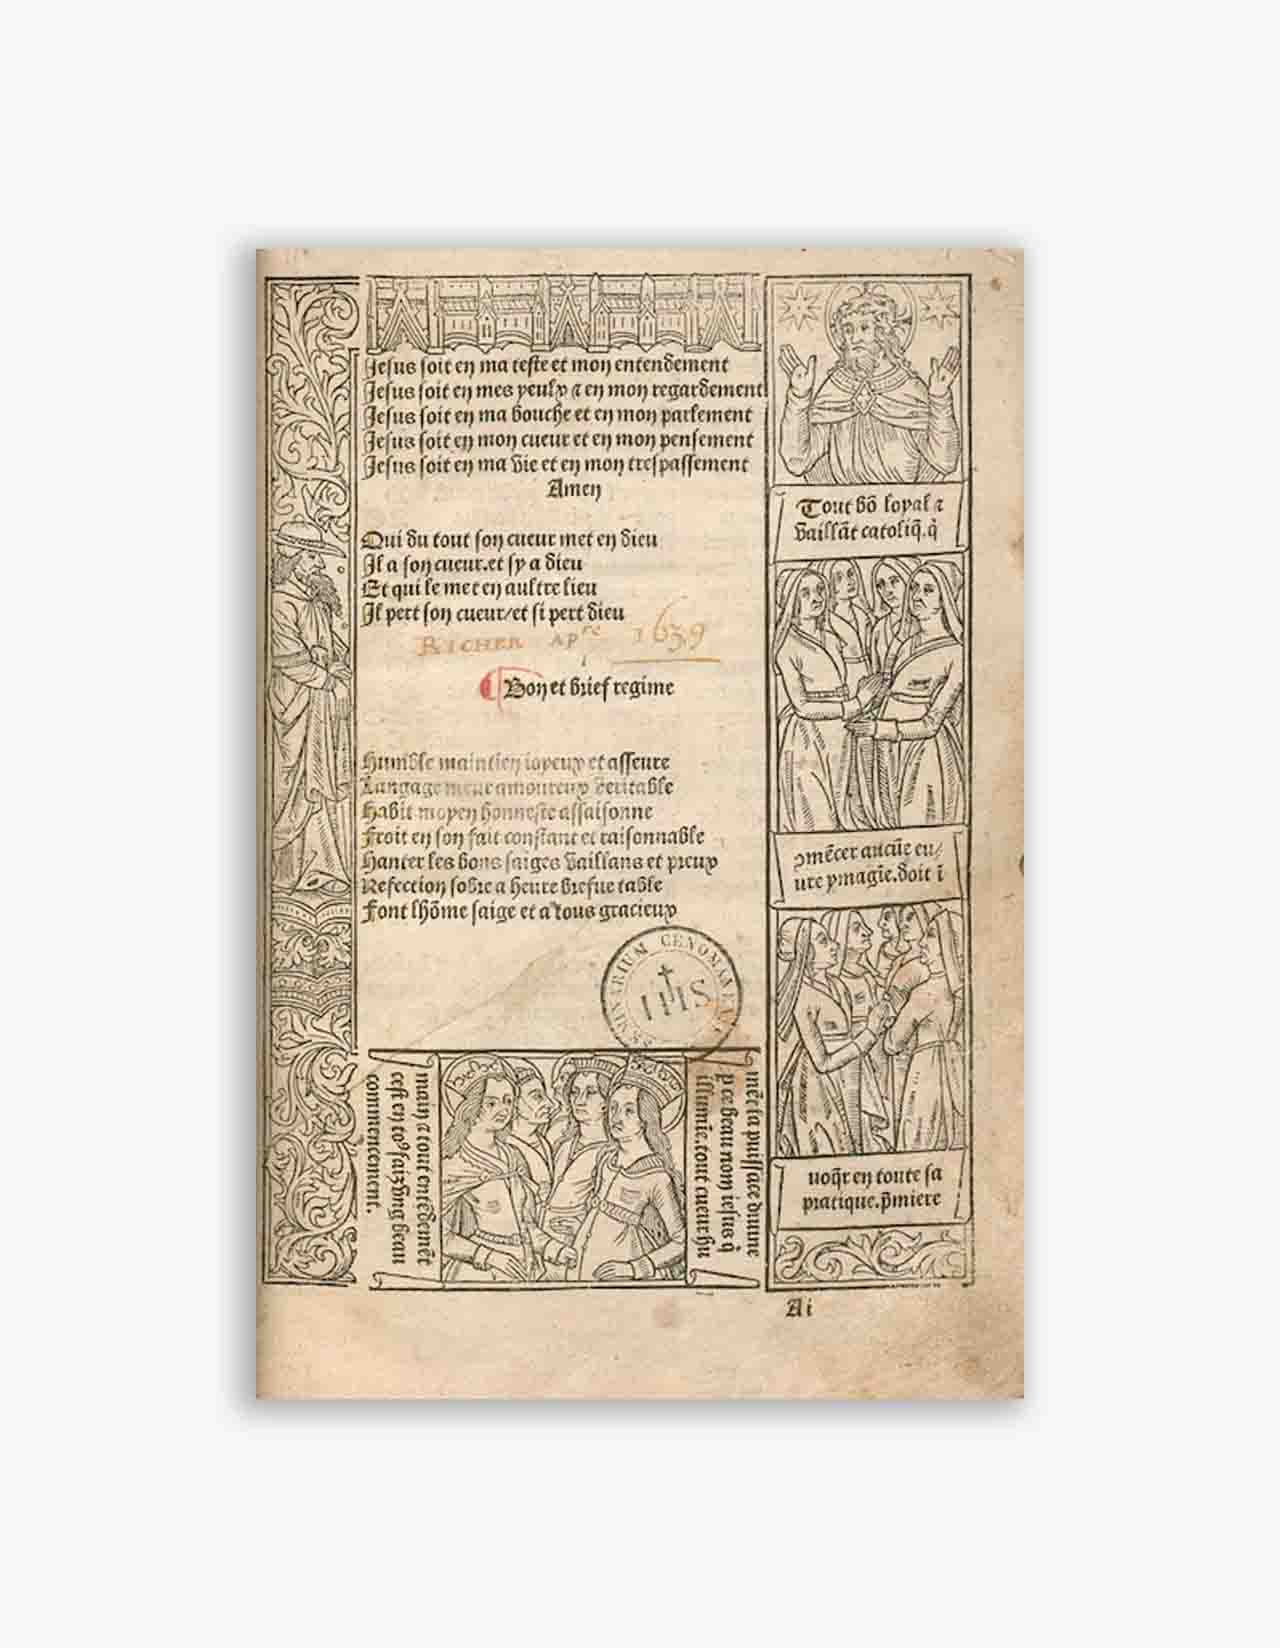 Jesus soit en ma teste et mon entendement
Jesus soit en mes yeulx ⁊ en mon regardement
Jesus soit en ma bouche et en mon parlement
Jesus soit en mon cueur et en mon pensement
Jesus soit en ma vie et en mon trespassement
Amen
Qui du tout son cueur met en dieu
Il a son cueur.et sy a dieu
Et qui le met en aultre lieu
Il pert son cueur/et si pert dieu
RICHER ap 1639
Bon et brief regime
Humble maintien ioyeux et asseure
Langage meur amoureux veritable
Habit moyen honneste assaisonne
Froit en son fait constant et raisonnable
Hanter les bons saiges vaillans et preux
Refection sobre a heure briefue table
Font lhõme saige et a tous gracieux
SEMINARIUM CENOMANENSE
IHS
Tout bõ loyal ⁊
vaillãt catoliq̃.q̃
ↄmẽcer aucũe eu/
ure ymagĩe.doit ĩ
uoq̃r en toute sa
pratique.p̃miere
mẽt la puissãce diuine
p ce beau nom iesus q̃
illumĩe.tout cueur hu
main ⁊ tout entẽdemẽt
cest en toꝰ faiz vng beau
commencement.
Ai